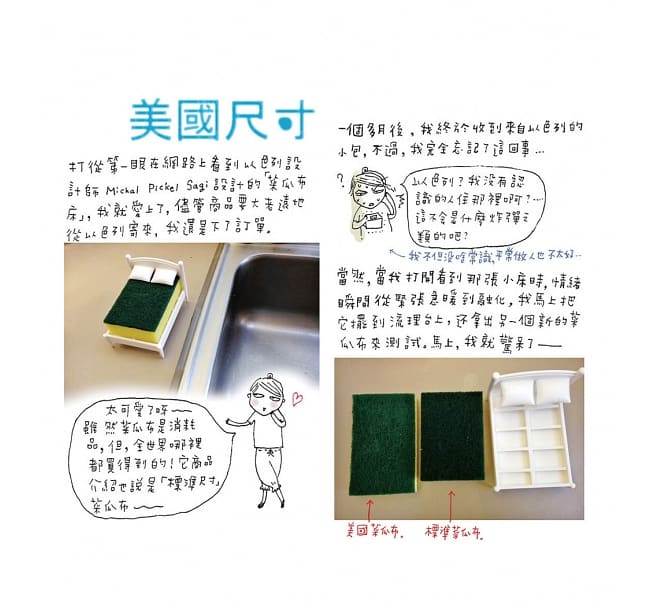 美國尺寸
打從第一眼在網路上看到以色列設
計師 Michal Pickel Sagi 設計的「菜瓜布
床」,我就愛上了,儘管商品要大老遠地
從以色列寄來,我還是下了訂單。
太可愛了呀——
雖然菜瓜布是消耗
品,但,全世界哪裡
都買得到的!它商品
介紹也說是「標準尺寸」
菜瓜布——
一個多月後,我終於收到來自以色列的
小包,不過,我完全忘記了這回事…
?
以色列?我没有認
識的人住那裡啊?…
這不會是什麼炸彈之
類的吧?
我不但没啥常識,平常做人也不太好…
當然,當我打開看到那張小床時,情緒
瞬間從緊張急暖到融化,我馬上把
它擺到流理台上,还拿出另一個新的菜
瓜布來測試。馬上,我就驚呆了——
美國菜瓜布.
標準菜瓜布.